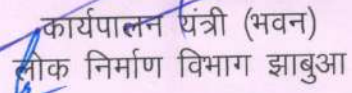 कार्यपालन यंत्री (भवन)
लोक निर्माण विभाग झाबुआ